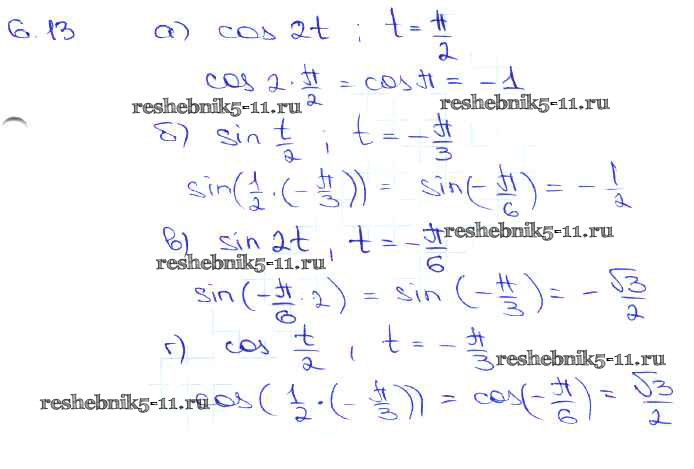 6.13 а) cos 2t ; t = π/2
cos 2 · π/2 = cos π = −1
reshebnik5-11.ru reshebnik5-11.ru
б) sin t/2 ; t = −π/3
sin(1/2 · (−π/3)) = sin(−π/6) = −1/2
в) sin 2t , t = −π/6 reshebnik5-11.ru
reshebnik5-11.ru
sin(−π/6 · 2) = sin (−π/3) = −√3/2
г) cos t/2 , t = −π/3 reshebnik5-11.ru
reshebnik5-11.ru cos(1/2 · (−π/3)) = cos(−π/6) = √3/2